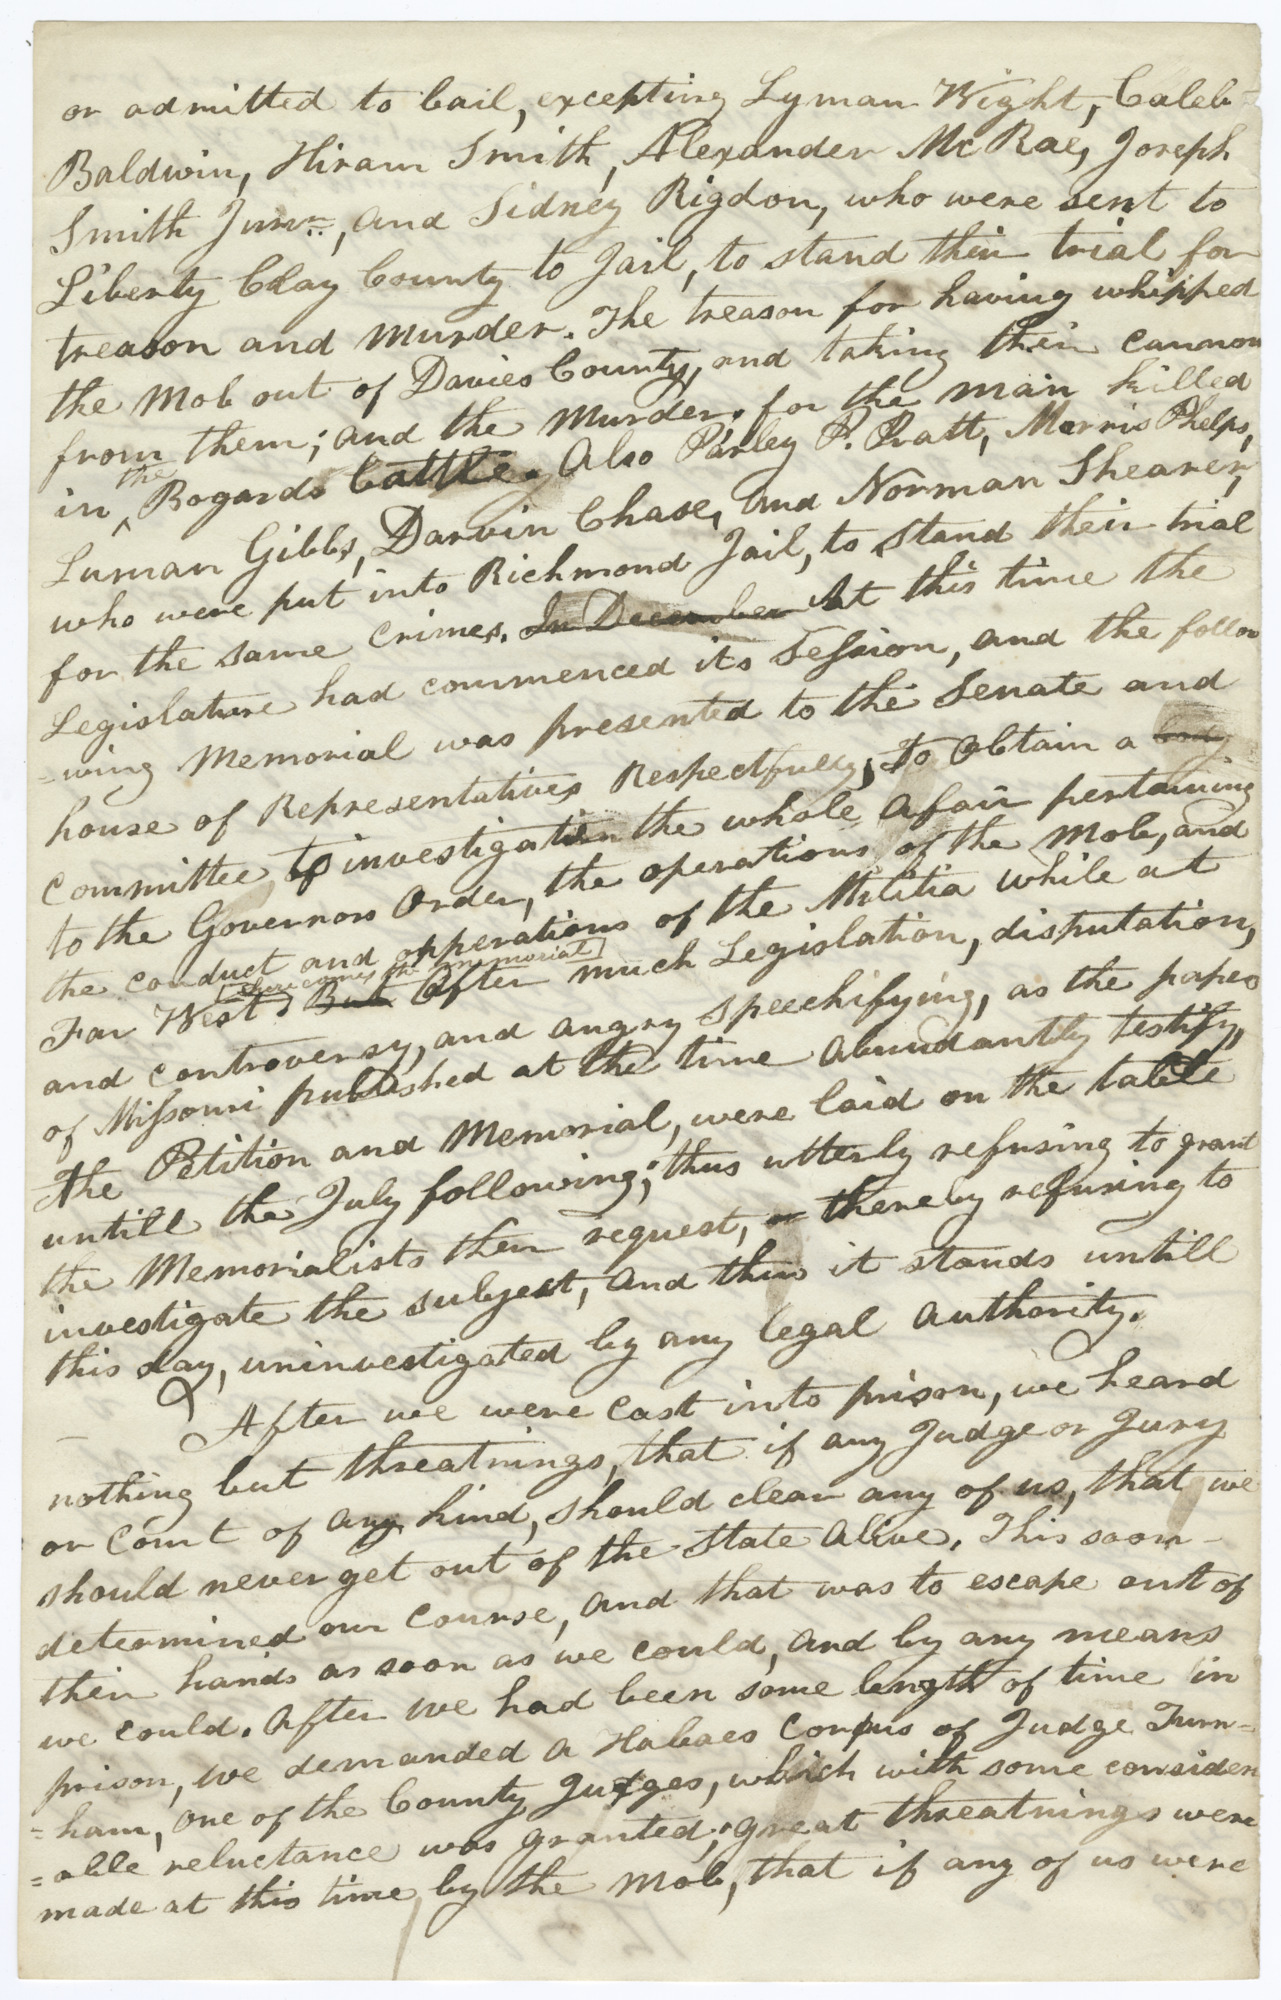 or admitted to bail, excepting Lyman Wight, Caleb
Baldwin, Hiram Smith, Alexander McRae, Joseph
Smith Junr., and Sidney Rigdon, who were sent to
Liberty Clay County to Jail, to stand their trial for
treason and murder. The treason for having whipped
the Mob out of Davies County, and taking their cannon
from them; and the Murder, for the man killed
in the Bogards Battle. Also Parley P. Pratt, Morris Phelps,
Luman Gibbs, Darwin Chase, and Norman Shearer,
who were put into Richmond Jail, to stand their trial
for the same crimes. In December At this time the
Legislature had commenced its Session, and the follow
-wing Memorial was presented to the Senate and
house of Representatives Respectfully, To obtain a
Committee to investigation the whole afair pertaining
to the Governors Order, the operations of the Mob, and
the conduct and opperations of the Militia while at
Far West [here comes the memorial] But After much Legislation, disputation,
and controversy, and angry speechifying, as the papers
of Missouri published at the time abundantly testify,
The Petition and Memorial, were laid on the table
untill the July following; thus utterly refusing to grant
the Memorialists their request, or thereby refusing to
investigate the subject, and thus it stands untill
this day, uninvestigated by any legal Authority.
After we were cast into prison, we heard
nothing but threatnings, that if any Judge or Jury
or Court of any kind, should clear any of us, that we
should never get out of the State alive. This soon
determined our course, and that was to escape out of
their hands as soon as we could, and by any means
we could. After we had been some length of time in
prison, we demanded a Habaes Corpus of Judge Turn-
=ham, one of the County Judges, which with some consider
=able reluctance was granted; great threatnings were
made at this time by the Mob, that if any of us were